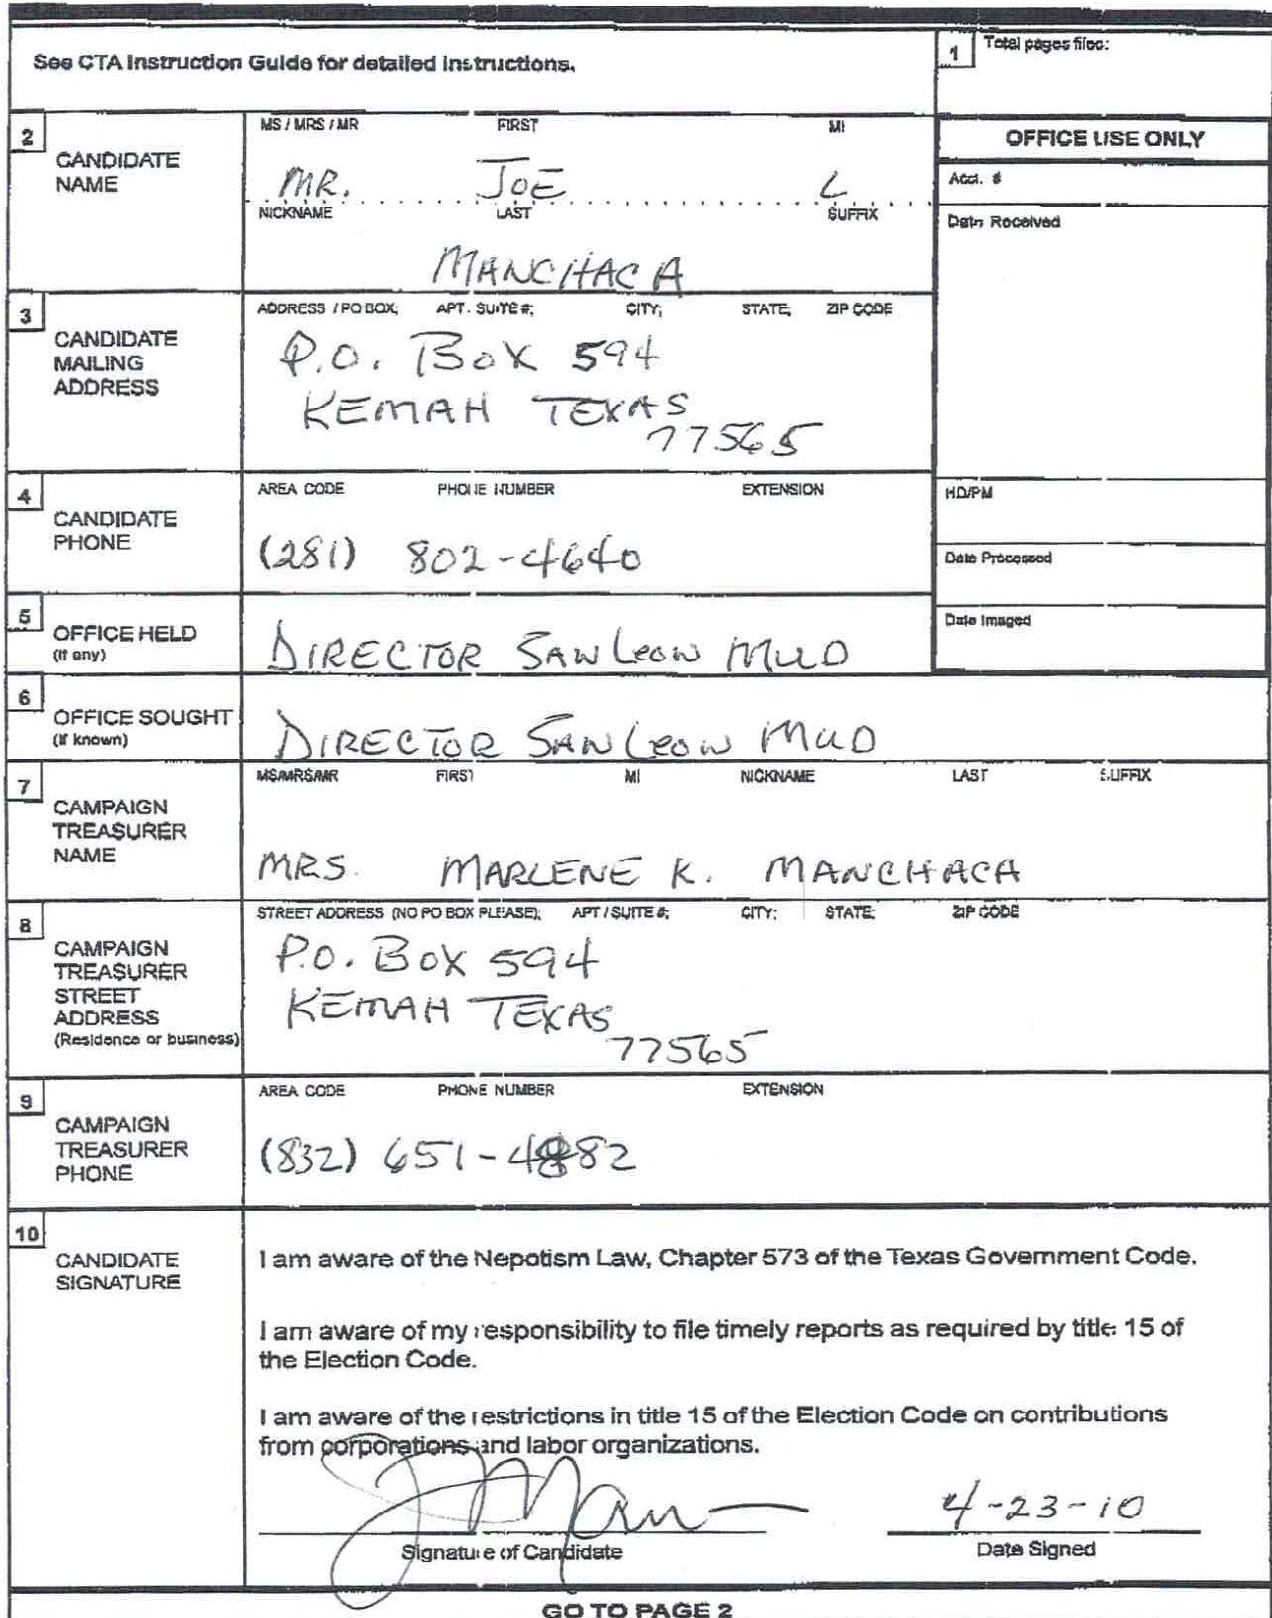 See CTA Instruction Guide for detailed instructions.
1 Total pages filed:
2 CANDIDATE NAME
MS / MRS / MR FIRST MI
MR. JOE L
NICKNAME LAST SUFFIX
MANCHACA
OFFICE USE ONLY
Acct. #
Date Received
3 CANDIDATE MAILING ADDRESS
ADDRESS / PO BOX; APT. SUITE #; CITY; STATE; ZIP CODE
P.O. BOX 594
KEMAH TEXAS
77565
4 CANDIDATE PHONE
AREA CODE PHONE NUMBER EXTENSION
(281) 802-4640
HD/PM
Date Processed
Date Imaged
5 OFFICE HELD
(if any)
DIRECTOR SAN Leon MUD
6 OFFICE SOUGHT
(if known)
DIRECTOR SAN Leon MUD
7 CAMPAIGN TREASURER NAME
MS/MRS/MR FIRST MI NICKNAME LAST SUFFIX
MRS. MARLENE K. MANCHACA
8 CAMPAIGN TREASURER STREET ADDRESS
(Residence or business)
STREET ADDRESS (NO PO BOX PLEASE); APT / SUITE #; CITY; STATE; ZIP CODE
P.O. BOX 594
KEMAH TEXAS
77565
9 CAMPAIGN TREASURER PHONE
AREA CODE PHONE NUMBER EXTENSION
(832) 651-4882
10 CANDIDATE SIGNATURE
I am aware of the Nepotism Law, Chapter 573 of the Texas Government Code.
I am aware of my responsibility to file timely reports as required by title 15 of
the Election Code.
I am aware of the restrictions in title 15 of the Election Code on contributions
from corporations and labor organizations.
4-23-10
Signature of Candidate Date Signed
GO TO PAGE 2